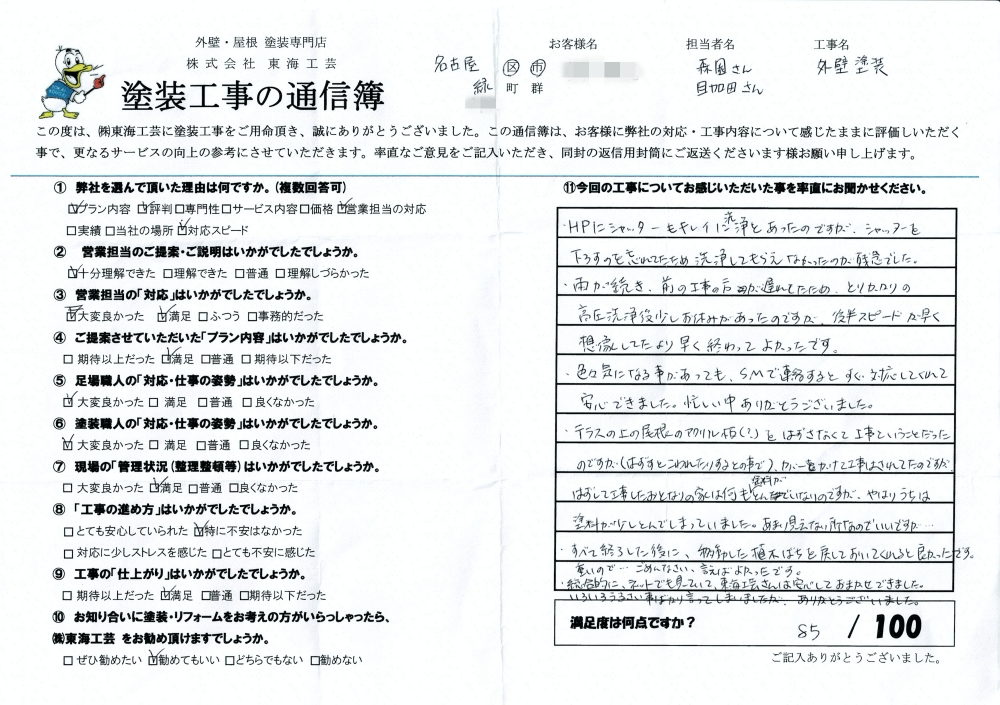 外壁・屋根 塗装専門店
株式会社 東海工芸
塗装工事の通信簿
お客様名 担当者名 工事名
名古屋 区 市 森園さん 外壁塗装
緑 町 群 目加田さん
この度は、㈱東海工芸に塗装工事をご用命頂き、誠にありがとうございました。この通信簿は、お客様に弊社の対応・工事内容について感じたままに評価しいただく
事で、更なるサービスの向上の参考にさせていただきます。率直なご意見をご記入いただき、同封の返信用封筒にご返送くださいます様お願い申し上げます。
① 弊社を選んで頂いた理由は何ですか。(複数回答可)
☑プラン内容 ☑評判 □専門性 □サービス内容 □価格 ☑営業担当の対応
□実績 □当社の場所 ☑対応スピード
② 営業担当のご提案・ご説明はいかがでしたでしょうか。
☑十分理解できた □理解できた □普通 □理解しづらかった
③ 営業担当の「対応」はいかがでしたでしょうか。
☑大変良かった ☑満足 □ふつう □事務的だった
④ ご提案させていただいた「プラン内容」はいかがでしたでしょうか。
□ 期待以上だった ☑満足 □普通 □ 期待以下だった
⑤ 足場職人の「対応・仕事の姿勢」はいかがでしたでしょうか。
☑ 大変良かった □ 満足 □普通 □ 良くなかった
⑥ 塗装職人の「対応・仕事の姿勢」はいかがでしたでしょうか。
☑ 大変良かった □ 満足 □普通 □良くなかった
⑦ 現場の「管理状況(整理整頓等)はいかがでしたでしょうか。
□ 大変良かった ☑満足 □普通 □良くなかった
⑧ 「工事の進め方」はいかがでしたでしょうか。
□とても安心していられた ☑特に不安はなかった
□ 対応に少しストレスを感じた □とても不安に感じた
⑨ 工事の「仕上がり」はいかがでしたでしょうか。
□ 期待以上だった ☑満足 □普通 □期待以下だった
⑩ お知り合いに塗装・リフォームをお考えの方がいらっしゃったら、
㈱東海工芸 をお勧め頂けますでしょうか。
□ぜひ勧めたい ☑勧めてもいい □どちらでもない □勧めない
⑪今回の工事についてお感じいただいた事を率直にお聞かせください。
・HPにシャッターもキレイに洗浄とあったのですが、シャッターを
下ろすのを忘れてたため洗浄してもらえなかったのが残念でした。
・雨が続き、前の工事の后が遅れてたため、とりかかりの
高圧洗浄後少しお休みがあったのですが、後半スピードが早く
想像してたより早く終わってよかったです。
・色々気になる事があっても、SMで連絡するとすぐ対応してくれて
安心できました。忙しい中ありがとうございました。
・テラスの上の屋根のアクリル板(?)をはずさなくて工事ということだった
のですが(はずすとこわれたりするとの事で)、カバーをかけて工事はされてたのですが
はずして工事したおとなりの家は何も塗料がとんでいないのですが、やはりうちは
塗料が少しとんでしまっていました。あまり見えない所なのでいいですが…
・すべて終了した後に、移動した植木ばちを戻しておいてくれると良かったです。
重いので… ごめんなさい、言えばよかったです。
・総合的に、ネットでも見ていて、東海工芸さんは安心しておまかせできました。
いろいろうるさい事ばかり言ってしまいましたが、ありがとうございました。
満足度は何点ですか? 85 / 100
ご記入ありがとうございました。